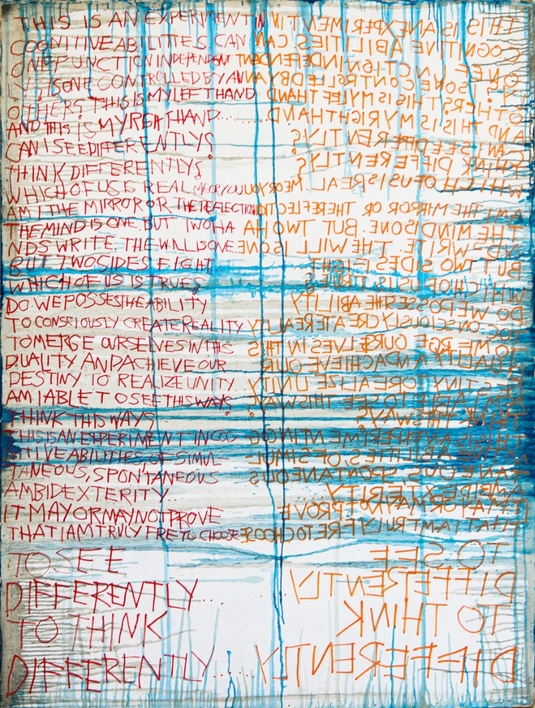 THIS IS AN EXPERIMENT IN
COGNITIVE ABILITIES, CAN
ONE FUNCTION INDEPENDENT
IS ONE CONTROLLED BY AN
OTHERS? THIS IS MY LEFT HAND
AND THIS IS MY RIGHT HAND.....
CAN I SEE DIFFERENTLY?
THINK DIFFERENTLY?
WHICH OF US IS REAL, ME OR YOU
AM I THE MIRROR OR THE REFLECTION
THE MIND IS ONE. BUT TWO HA
NDS WRITE, THE WILL IS ONE.
BUT TWO SIDES FIGHT
WHICH OF US IS TRUE?
DO WE POSSES THE ABILITY
TO CONSCIOUSLY CREATE REALITY
TO MERGE OURSELVES IN THIS
DUALITY AND ACHIEVE OUR
DESTINY TO REALIZE UNITY.
AM I ABLE TO SEE THIS WAY?
THINK THIS WAY?
THIS IS AN EXPERIMENT IN COG
NITIVE ABILITIES OF SIMUL
TANEOUS, SPONTANEOUS
AMBIDEXTERITY...
IT MAY OR MAY NOT PROVE
THAT I AM TRULY FREE TO CHOOSE
TO SEE
DIFFERENTLY...
TO THINK
DIFFERENTLY...
THIS IS AN EXPERIMENT IN
COGNITIVE ABILITIES, CAN
ONE FUNCTION INDEPENDENT
IS ONE CONTROLLED BY AN
OTHERS? THIS IS MY LEFT HAND
AND THIS IS MY RIGHT HAND
CAN I SEE DIFFERENTLY?
THINK DIFFERENTLY?
WHICH OF US IS REAL, ME OR YOU
AM I THE MIRROR OR THE REFLECTION
THE MIND IS ONE. BUT TWO HA
NDS WRITE, THE WILL IS ONE.
BUT TWO SIDES FIGHT
WHICH OF US IS TRUE?
DO WE POSSES THE ABILITY
TO CONSCIOUSLY CREATE REALITY
TO MERGE OURSELVES IN THIS
DUALITY AND ACHIEVE OUR
DESTINY TO REALIZE UNITY
AM I ABLE TO SEE THIS WAY?
THINK THIS WAY?
THIS IS AN EXPERIMENT IN COG
NITIVE ABILITIES, OF SIMUL
TANEOUS, SPONTANEOUS
AMBIDEXTERITY
IT MAY OR MAY NOT PROVE
THAT I AM TRULY FREE TO CHOOSE
TO SEE
DIFFERENTLY
TO THINK
DIFFERENTLY